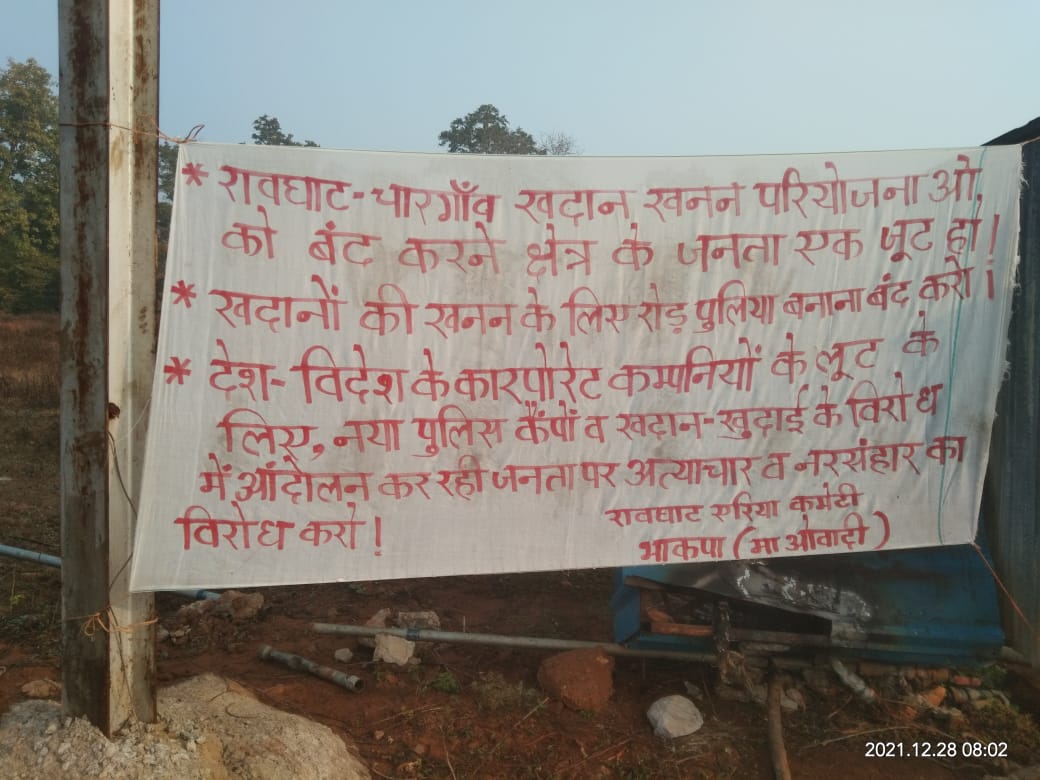 * रावघाट-चारगाँव खदान खनन परियोजनाओं
को बंद करने क्षेत्र के जनता एक जूट हो!
* खदानों की खनन के लिए रोड़ पुलिया बनाना बंद करो!
* देश-विदेश के कारपोरेट कम्पनियों के लूट के
लिए, नया पुलिस कैंपों व खदान-खुदाई के विरोध
में आंदोलन कर रही जनता पर अत्याचार व नरसंहार का
विरोध करो!
रावघाट एरिया कमेटी
भाकपा (माओवादी)
2021.12.28 08:02